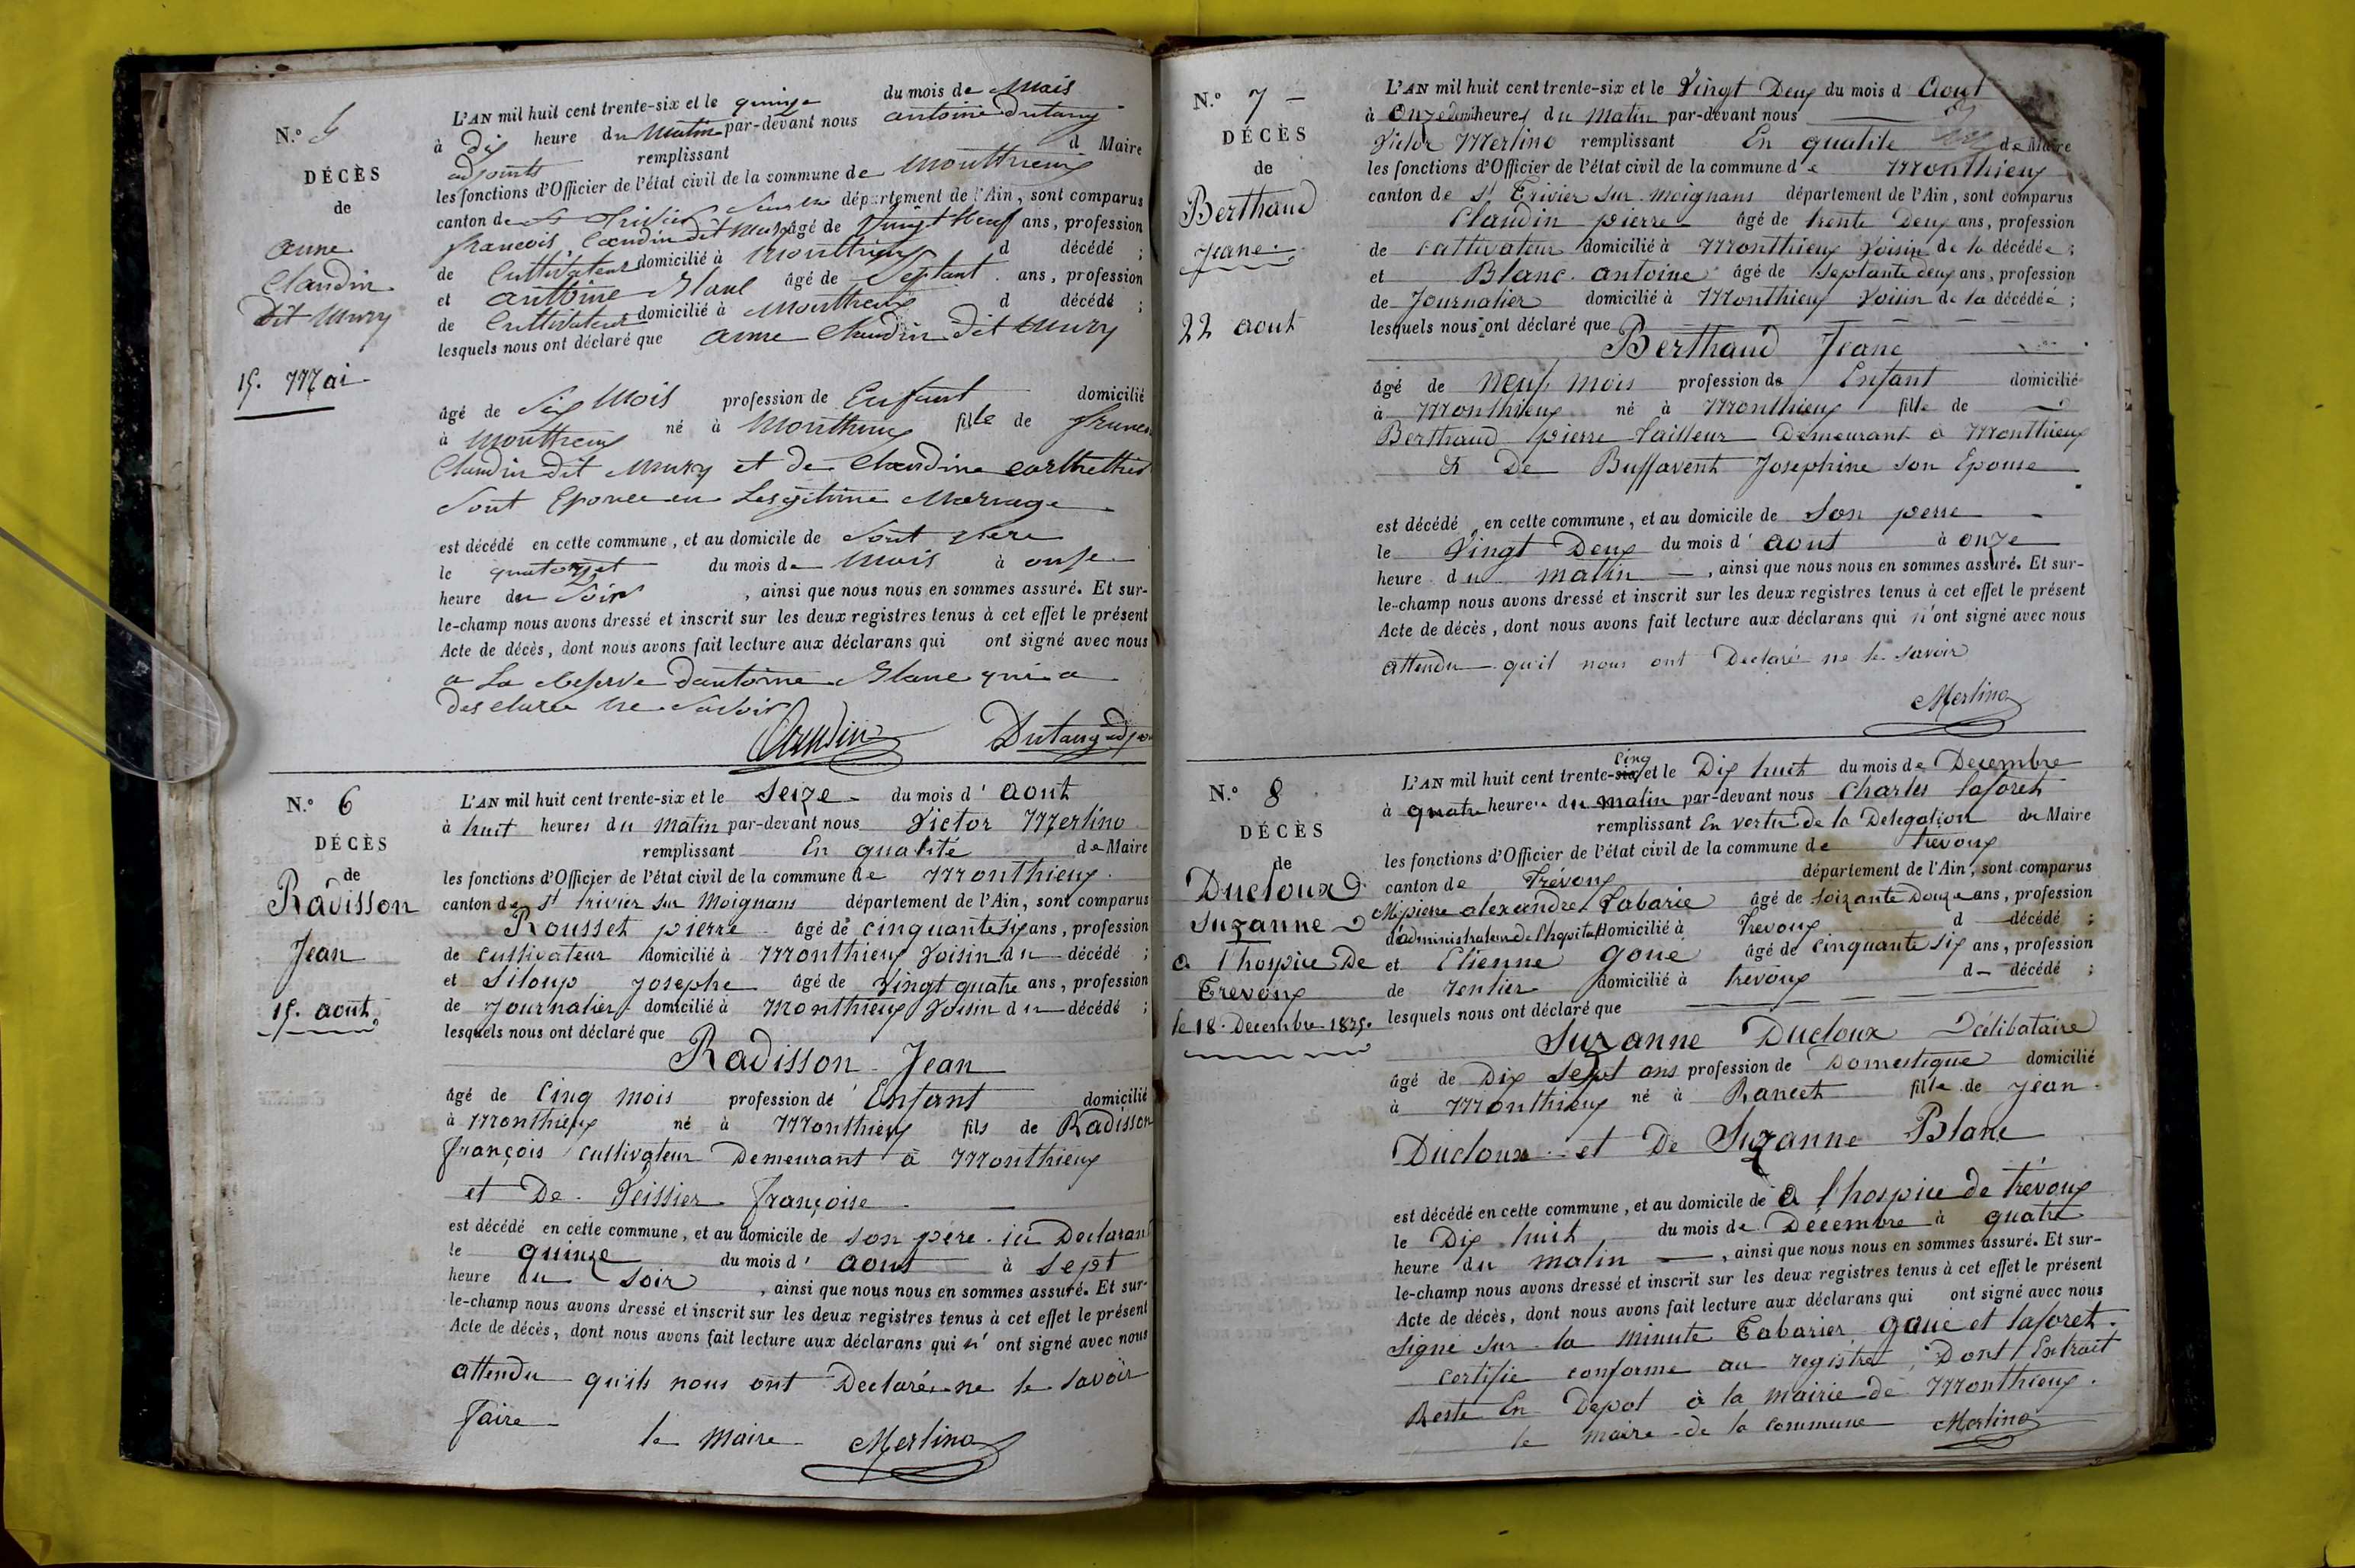 N.º 5
DÉCÈS
de
anne
Claudin
Dit Mury
15. Mai
L'AN mil huit cent trente-six et le quinze du mois de Mais
à dix heure du Matin par-devant nous antoine Dutang
adjoints remplissant d Maire
les fonctions d'Officier de l'état civil de la commune de Montthieux
canton de St Trivier département de l'Ain, sont comparus
francois Claudin dit Mury âgé de Vingt Neuf ans, profession
de Cultivateur domicilié à Montthieux d décédé ;
et anttoine Blanc âgé de Septant ans, profession
de Cultivateur domicilié à Montthieux d décédé ;
lesquels nous ont déclaré que anne Claudin Dit Mury
âgé de Six Mois profession de Enfant domicilié
à Montthieux né à Montthieux fille de
Claudin Dit Mury et de Claudine
Sont Epouce en Legitime Mariage
est décédé en cette commune, et au domicile de Sont Pere
le quatorze du mois de Mais à onse
heure du Soir , ainsi que nous nous en sommes assuré. Et sur-
le-champ nous avons dressé et inscrit sur les deux registres tenus à cet effet le présent
Acte de décès, dont nous avons fait lecture aux déclarans qui ont signé avec nous
a La Reserve dantoine Blanc qui a
ne Savoir
Claudin Dutang
N.º 6
DÉCÈS
de
Radisson
Jean
15. aout
L'AN mil huit cent trente-six et le Seize du mois d' aout
à huit heures du Matin par-devant nous Victor Merlino
remplissant En qualité de Maire
les fonctions d'Officier de l'état civil de la commune de Monthieux
canton de St trivier Sur Moignans département de l'Ain, sont comparus
Rousset pierre âgé de cinquante six ans, profession
de cultivateur domicilié à Monthieux Voisin du décédé ;
et Siloup Josephe âgé de Vingt quatre ans, profession
de Journalier domicilié à Monthieux Voisin du décédé ;
lesquels nous ont déclaré que
Radisson Jean
âgé de Cinq mois profession de Enfant domicilié
à Monthieux né à Monthieux fils de Radisson
françois cultivateur Demeurant à Monthieux
et De Veissier françoise
est décédé en cette commune, et au domicile de son pere
le quinze du mois d' aout à sept
heure du soir , ainsi que nous nous en sommes assuré. Et sur-
le-champ nous avons dressé et inscrit sur les deux registres tenus à cet effet le présent
Acte de décès, dont nous avons fait lecture aux déclarans qui n' ont signé avec nous
attendu qu'ils nous ont Declarés ne le Savoir
faire
le Maire Merlino
N.º 7
DÉCÈS
de
Berthaud
Jeane
22 aout
L'AN mil huit cent trente-six et le Vingt Deux du mois d Aout
à Onze heures du Matin par-devant nous
Victor Merlino remplissant En qualité de Maire
les fonctions d'Officier de l'état civil de la commune de Monthieux
canton de St Trivier sur moignans département de l'Ain, sont comparus
Claudin pierre âgé de trente Deux ans, profession
de cultivateur domicilié à Monthieux Voisin de la décédée ;
et Blanc antoine âgé de Septante deux ans, profession
de Journalier domicilié à Monthieux Voisin de la décédée ;
lesquels nous ont déclaré que
Berthaud Jeane
âgé de Neuf mois profession de Enfant domicilié
à Monthieux né à Monthieux fille de
Berthaud pierre tailleur Demeurant à Monthieux
et De Buffavent Josephine son Epouse
est décédé en cette commune, et au domicile de Son perre
le Vingt Deux du mois d' aout à onze
heure du matin , ainsi que nous nous en sommes assuré. Et sur-
le-champ nous avons dressé et inscrit sur les deux registres tenus à cet effet le présent
Acte de décès, dont nous avons fait lecture aux déclarans qui n'ont signé avec nous
attendu qu'il nous ont Declaré ne le savoir
Merlino
N.º 8
DÉCÈS
de
Ducloux
Suzanne
a l'hospice De
Trevoux
le 18. Decembre 1835.
cinq
L'AN mil huit cent trente-six et le Dix huit du mois de Decembre
à quatre heure du matin par-devant nous Charles laforet
remplissant En vertu de la Delegation du Maire
les fonctions d'Officier de l'état civil de la commune de trevoux
canton de Trévoux département de l'Ain, sont comparus
pierre alexandre Tabarie âgé de soixante Douze ans, profession
d'administrateur de l'hopital domicilié à Trevoux d décédé ;
et Etienne Goué âgé de cinquante six ans, profession
de rentier domicilié à trevoux d décédé ;
lesquels nous ont déclaré que
Suzanne Ducloux Célibataire
âgé de Dix Sept ans profession de Domestique domicilié
à Monthieux né à Rancet fille de Jean
Ducloux et De Suzanne Blanc
est décédé en cette commune, et au domicile de a l'hospice de trévoux
le Dix huit du mois de Decembre à quatre
heure du matin , ainsi que nous nous en sommes assuré. Et sur-
le-champ nous avons dressé et inscrit sur les deux registres tenus à cet effet le présent
Acte de décès, dont nous avons fait lecture aux déclarans qui ont signé avec nous
Signé sur la minute Tabarier, Goué et laforet.
certifie conforme au registre, Dont l'Extrait
Reste En Depot à la mairie de Monthieux.
le maire de la commune Merlino